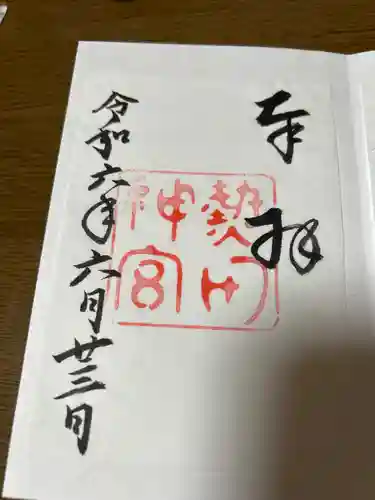 奉拝
熱田
神宮
令和六年六月廿三日